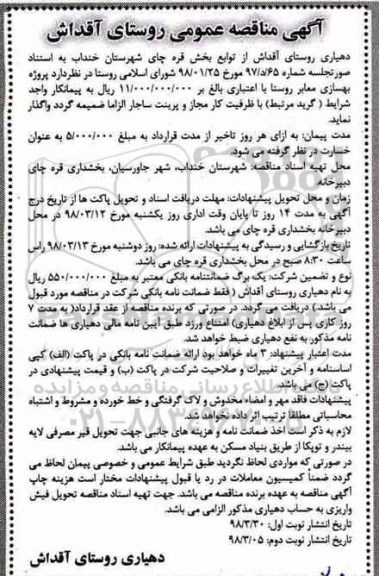 آگهی مناقصه عمومی روستای آقداش
دهیاری روستای آقداش از توابع بخش قره چای شهرستان خنداب به استناد
صورتجلسه شماره ۶۵/د/۹۷ مورخ ۹۸/۰۱/۲۵ شورای اسلامی روستا در نظردارد پروژه
بهسازی معابر روستا با اعتباری بالغ بر ۱۱/۰۰۰/۰۰۰/۰۰۰ ریال به پیمانکار واجد
شرایط ( گرید مرتبط) با ظرفیت کار مجاز و پرینت ساجار الزاما ضمیمه گردد واگذار
نماید.
مدت پیمان: به ازای هر روز تاخیر از مدت قرارداد به مبلغ ۵/۰۰۰/۰۰۰ به عنوان
خسارت در نظر گرفته می شود.
محل تهیه اسناد مناقصه: شهرستان خنداب، شهر جاورسیان، بخشداری قره چای
دبیرخانه
زمان و محل تحویل پیشنهادات: مهلت دریافت اسناد و تحویل پاکت ها از تاریخ درج
آگهی به مدت ۱۴ روز تا پایان وقت اداری روز یکشنبه مورخ ۹۸/۰۳/۱۲ در محل
دبیرخانه بخشداری قره چای می باشد.
تاریخ بازگشایی و رسیدگی به پیشنهادات ارائه شده: روز دوشنبه مورخ ۹۸/۰۳/۱۳ راس
ساعت ۸:۳۰ صبح در محل بخشداری قره چای می باشد.
نوع و تضمین شرکت: یک برگ ضمانتنامه بانکی معتبر به مبلغ ۵۵۰/۰۰۰/۰۰۰ ریال
به نام دهیاری روستای آقداش ( فقط ضمانت نامه بانکی شرکت در مناقصه مورد قبول
می باشد) دریافت می گردد. در صورتی که برنده مناقصه از عقد قرارداد( به مدت ۷
روز کاری پس از ابلاغ دهیاری) امتناع ورزد طبق آیین نامه مالی دهیاری ها ضمانت
نامه مذکور به نفع دهیاری ضبط خواهد شد.
مدت اعتبار پیشنهاد: ۳ ماه خواهد بود ارائه ضمانت نامه بانکی در پاکت (الف) کپی
اساسنامه و آخرین تغییرات و صلاحیت شرکت در پاکت (ب) و قیمت پیشنهادی در
پاکت (ج) می باشد.
پیشنهادات فاقد مهر و امضاء مخدوش و لاک گرفتگی و خط خورده و مشروط و اشتباه
محاسباتی مطلقا ترتیب اثر داده نخواهد شد.
لازم به ذکر است اخذ ضمانت نامه و هزینه های جانبی جهت تحویل قیر مصرفی لایه
بیندر و توپکا از طریق بنیاد مسکن به عهده پیمانکار می باشد.
در صورتی که مواردی لحاظ نگردید طبق شرایط عمومی و خصوصی پیمان لحاظ می
گردد ضمناً کمیسیون معاملات در رد یا قبول پیشنهادات مختار است هزینه چاپ
آگهی مناقصه به عهده برنده مناقصه می باشد. جهت تهیه اسناد مناقصه تحویل فیش
واریزی به حساب دهیاری مذکور الزامی می باشد.
تاریخ انتشار نوبت اول: ۹۸/۳/۳۰
تاریخ انتشار نوبت دوم: ۹۸/۳/۰۵
دهیاری روستای آقداش